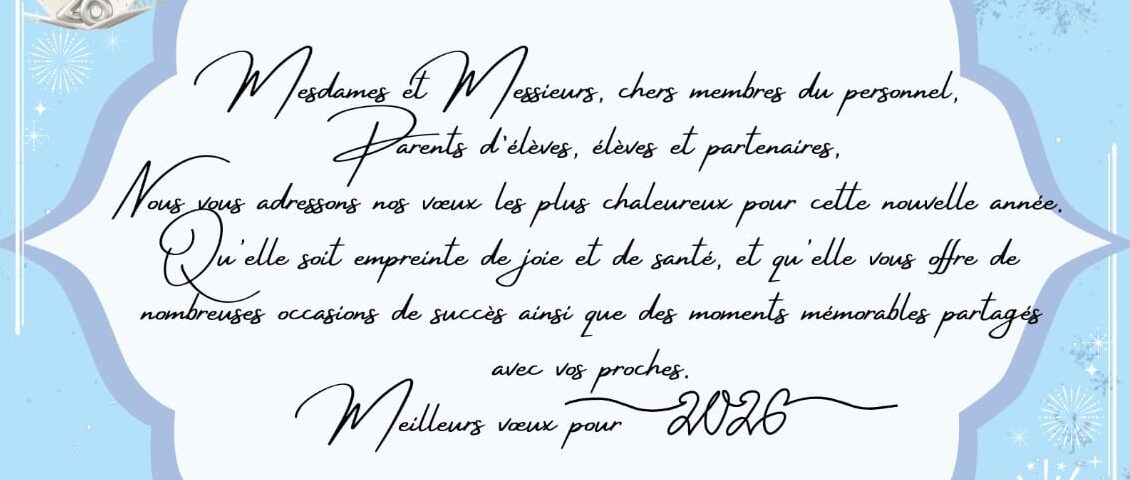 Mesdames et Messieurs, chers membres du personnel,
Parents d'élèves, élèves et partenaires,
Nous vous adressons nos vœux les plus chaleureux pour cette nouvelle année.
Qu'elle soit empreinte de joie et de santé, et qu'elle vous offre de
nombreuses occasions de succès ainsi que des moments mémorables partagés
avec vos proches.
Meilleurs vœux pour 2026